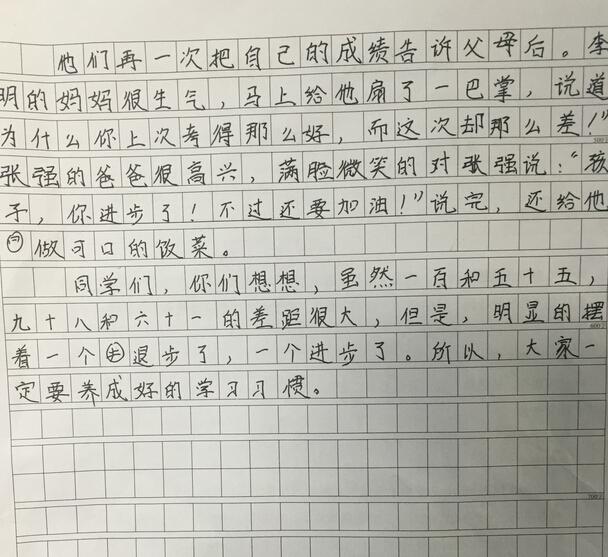 他们再一次把自己的成绩告诉父母后。李
明的妈妈很生气，马上给他扇了一巴掌，说道
为什么你上次考得那么好，而这次却那么差！”
张强的爸爸很高兴，满脸微笑的对张强说：“孩
子，你进步了！不过还要加油！”说完，还给他
做可口的饭菜。
同学们，你们想想，虽然一百和五十五，
九十八和六十一的差距很大，但是，明显的摆
着一个退步了，一个进步了。所以，大家一
定要养成好的学习习惯。
500
600
700